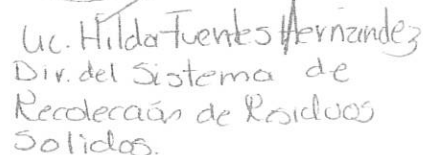 Lic. Hilda Fuentes Hernandez
Dir. del Sistema de
Recolección de Residuos
Solidos.